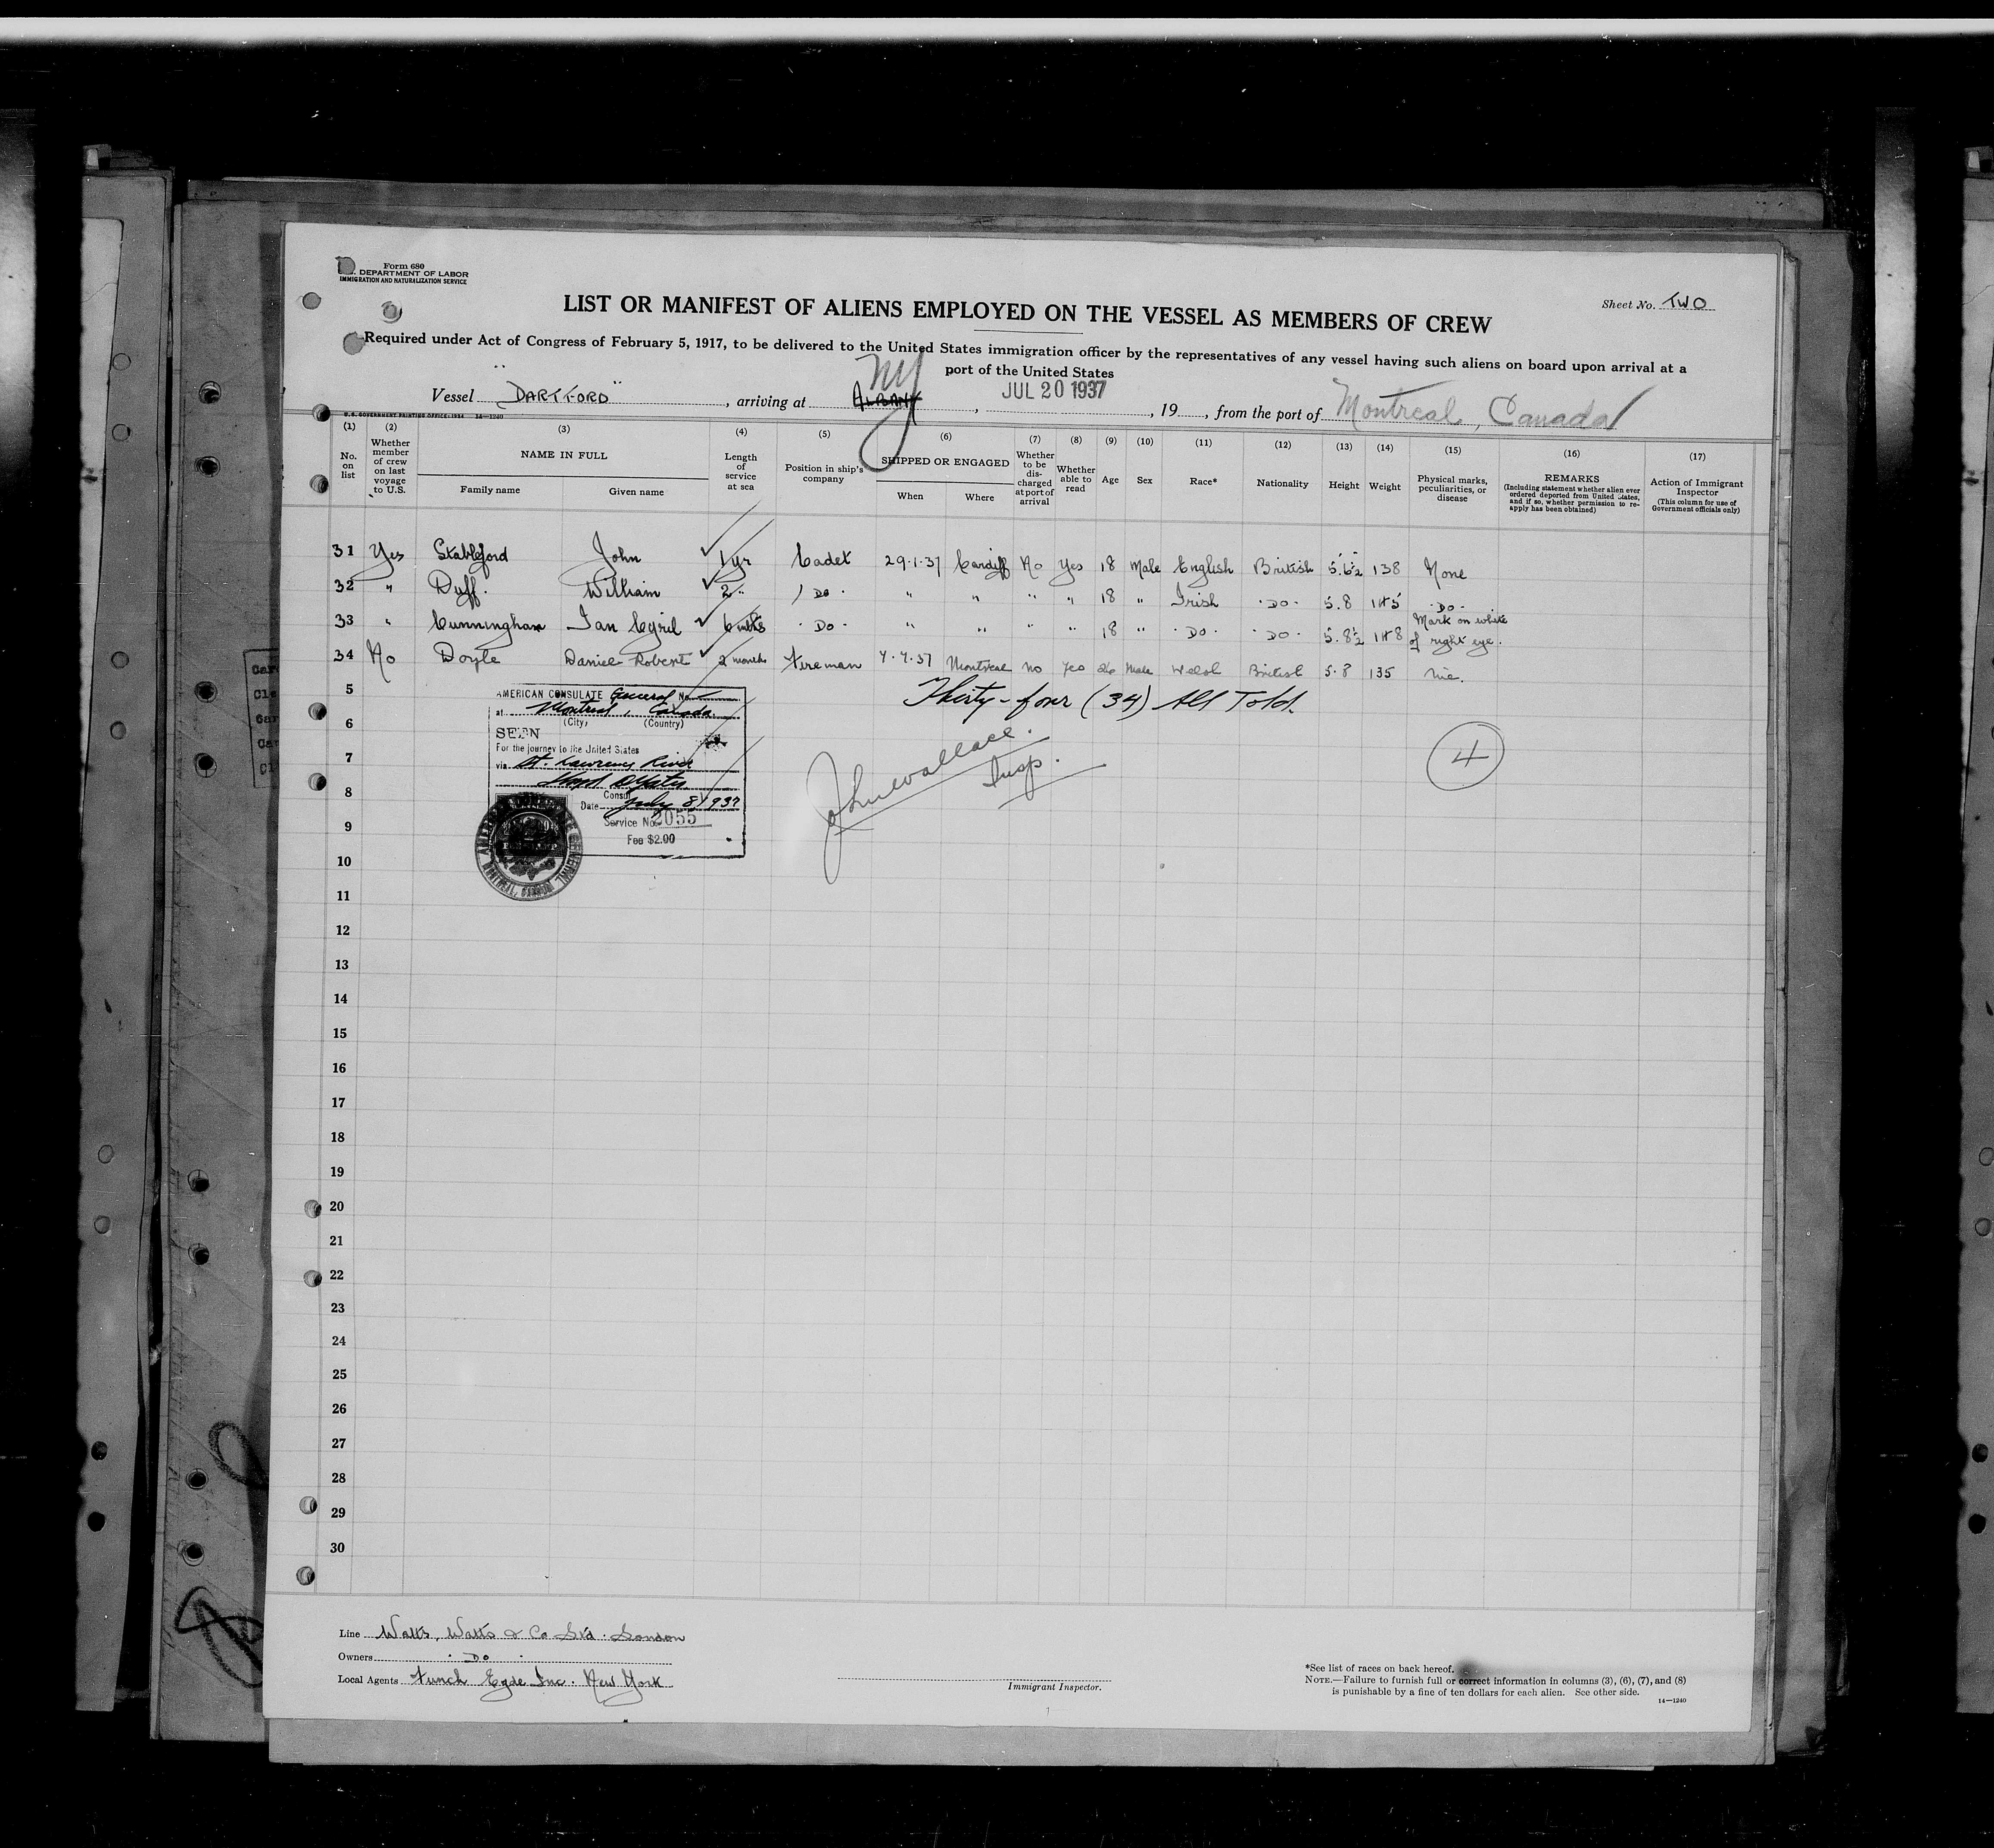 Form 680
DEPARTMENT OF LABOR
IMMIGRATION AND NATURALIZATION SERVICE
Sheet No. TWO
LIST OR MANIFEST OF ALIENS EMPLOYED ON THE VESSEL AS MEMBERS OF CREW
Required under Act of Congress of February 5, 1917, to be delivered to the United States immigration officer by the representatives of any vessel having such aliens on board upon arrival at a
port of the United States
NY
Vessel "DARTFORD", arriving at ALBANY, JUL 20 1937, 19, from the port of Montreal, Canada
U.S. GOVERNMENT PRINTING OFFICE: 1934 14—1240
(1) (2) (3) (4) (5) (6) (7) (8) (9) (10) (11) (12) (13) (14) (15) (16) (17)
No. on list
Whether member of crew on last voyage to U.S.
NAME IN FULL
Family name Given name
Length of service at sea
Position in ship's company
SHIPPED OR ENGAGED
When Where
Whether to be discharged at port of arrival
Whether able to read
Age
Sex
Race*
Nationality
Height
Weight
Physical marks, peculiarities, or disease
REMARKS
(Including statement whether alien ever ordered deported from United States, and if so, whether permission to reapply has been obtained)
Action of Immigrant Inspector
(This column for use of Government officials only)
31 Yes Stableford John 1 yr Cadet 29.1.37 Cardiff No Yes 18 Male English British 5.6½ 138 None
32 " Duff. William 2 " Do. " " " " 18 " Irish .Do. 5.8 145 .Do.
33 " Cunningham Ian Cyril 6 mths .Do. " " " " 18 " .Do. .Do. 5.8½ 148 Mark on white of right eye.
34 No Doyle Daniel Robert 2 months Fireman 7.7.37 Montreal no yes 26 Male Welsh British 5.8 135 Nil.
5
Thirty-four (34) All Told.
6
7
8
9
10
11
12
13
14
15
16
17
18
19
20
21
22
23
24
25
26
27
28
29
30
AMERICAN CONSULATE General No.
at Montreal, Canada
(City) (Country)
SEEN
For the journey to the United States
via St. Lawrence River
Consul
Date July 8, 1937
Service No. 2055
Fee $2.00
John Wallace.
Insp.
4
Line Watts, Watts & Co Ltd. London
Owners .Do.
Local Agents Funch Edye Inc. New York
Immigrant Inspector.
*See list of races on back hereof.
NOTE.—Failure to furnish full or correct information in columns (3), (6), (7), and (8)
is punishable by a fine of ten dollars for each alien. See other side.
14—1240